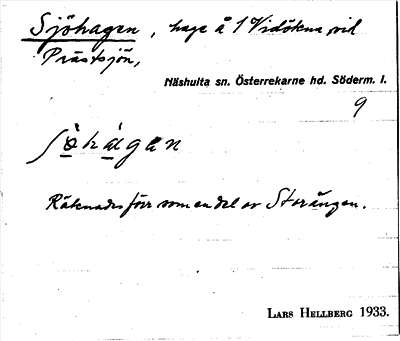 Sjöhagen, hage å 1 Vidökna vid
Prästsjön,
Näshulta sn. Österrekarne hd. Söderm. l.
9
Räknades förr som en del av Storängen.
LARS HELLBERG 1933.